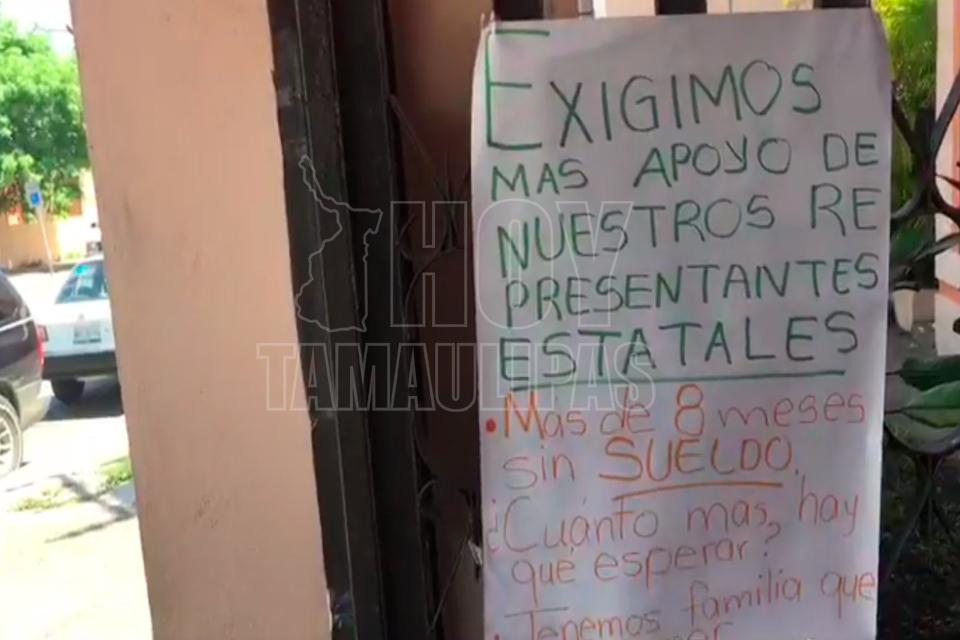 EXIGIMOS
MAS APOYO DE
NUESTROS RE
PRESENTANTES
ESTATALES
• Más de 8 meses
sin SUELDO,
¿Cuánto mas, hay
que esperar?
• Tenemos familia que
HOY
TAMAULIPAS